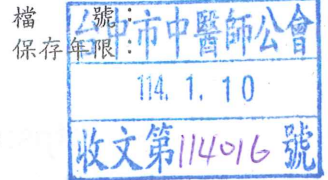 檔　　號：
保存年限：
台中市中醫師公會
114. 1. 10
收文第114016號